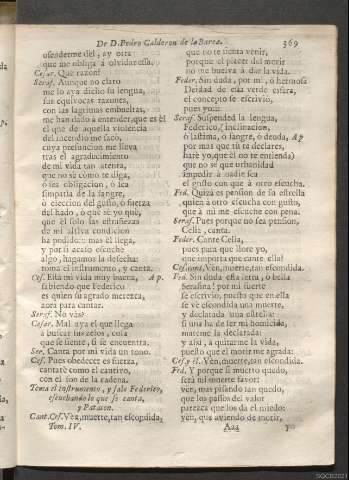 De D. Pedro Calderon de la Barca. 369
ofenderme del, ay otra
que me obliga à olvidar essa.
Cesar. Què razon?
Seraf. Aunque no claro
me lo aya dicho su lengua,
sus equivocas razones,
con las lagrimas embueltas,
me han dado à entender, que es èl
el que de aquella violencia
del incendio me sacò,
cuya presuncion me lleva
tras el agradecimiento
de mi vida tan atenta,
que no sè como te diga,
ò sea obligacion, ò sea
simpatia de la sangre,
ò eleccion del gusto, ò fuerza
del hado, ò què sè yo què,
que èl solo las estrañezas
de mi altiva condicion
ha podido: mas èl llega,
y por si acaso escuche
algo, hagamos la desecha:
toma el instrumento, y canta.
Ces. Està mi vida muy buena, Ap.
sabiendo que Federico
es quien su agrado merezca,
aora para cantar.
Seraf. No vàs?
Cesar. Mal aya el que llega
à buscar sus zelos, cosa
que se siente, si se encuentra.
Ser. Canta por mi vida un tono.
Ces. Pues obedecer es fuerza,
cantarè como el cautivo,
con el son de la cadena.
Toma el instrumento, y sale Federico,
escuchando lo que se canta,
y Patacon.
Cant. Ces. Ven, muerte, tan escondida,
Tom. IV.
que no te sienta venir,
porque el placer del morir
no me buelva à dar la vida.
Feder. Sin duda, por mi, ò hermosa
Deidad de esta verde esfera,
el concepto se escrivio,
pues yo::
Seraf. Suspended la lengua,
Federico, (inclinacion,
ò lastima, ò sangre, ò deuda, Ap
por mas que tù te declares,
harè yo, que èl no te entienda)
que no sè que urbanidad
impedir à nadie sea
el gusto con que à otro escucha.
Fed. Quizà es pension de su estrella
quien à otro escucha con gusto,
que à mi me escuche con pena.
Seraf. Pues porque no sea pension,
Celia, canta.
Feder. Cante Celia,
pues para que llore yo,
que importa que cante ella?
Ces. cant. Ven, muerte, tan escondida.
Fed. Sin duda esta letra, ò bella
Serafina! por mi suerte
se escrivio, puesto que en ella
se vè escondida una muerte,
y declarada una estrella:
si una ha de ser mi homicida,
matème la declarada:
y assi, à quitarme la vida,
puesto que el morir me agrada:
Ces. y èl. Ven, muerte, tan escondida.
Fed. Y porque si muerto quedo,
serà mi muerte favor:
ven, mas pisando tan quedo,
que los passos del valor
parezca que los dà el miedo:
ven, que aviendo de morir,
Aaa